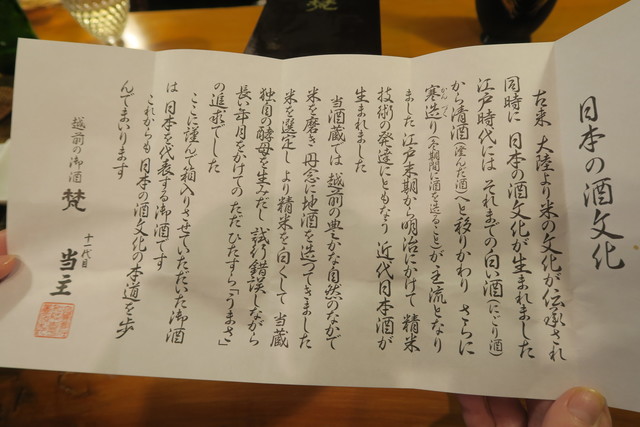 日本の酒文化
古来 大陸より米の文化が伝承され
同時に 日本の酒文化が生まれました
江戸時代には それまでの白い酒(にごり酒)
から清酒(澄んだ酒)へと移りかわり さらに
寒造り(冬期間に酒を造ること)が主流となり
かんづくり
ました 江戸末期から明治にかけて 精米
技術の発達にともなう 近代日本酒が
生まれました
当酒蔵では 越前の豊かな自然のなかで
米を磨き 丹念に地酒を造ってきました
米を選定し より精米を白くして 当蔵
独自の酵母を生みだし 試行錯誤しながら
長い年月をかけての ただひたすら「うまさ」
の追求でした
ここに謹んで箱入りさせていただいた御酒
は 日本を代表する御酒です
これからも 日本の酒文化の本道を歩
んでまいります
越前の御酒 梵 十一代目 当主
梵